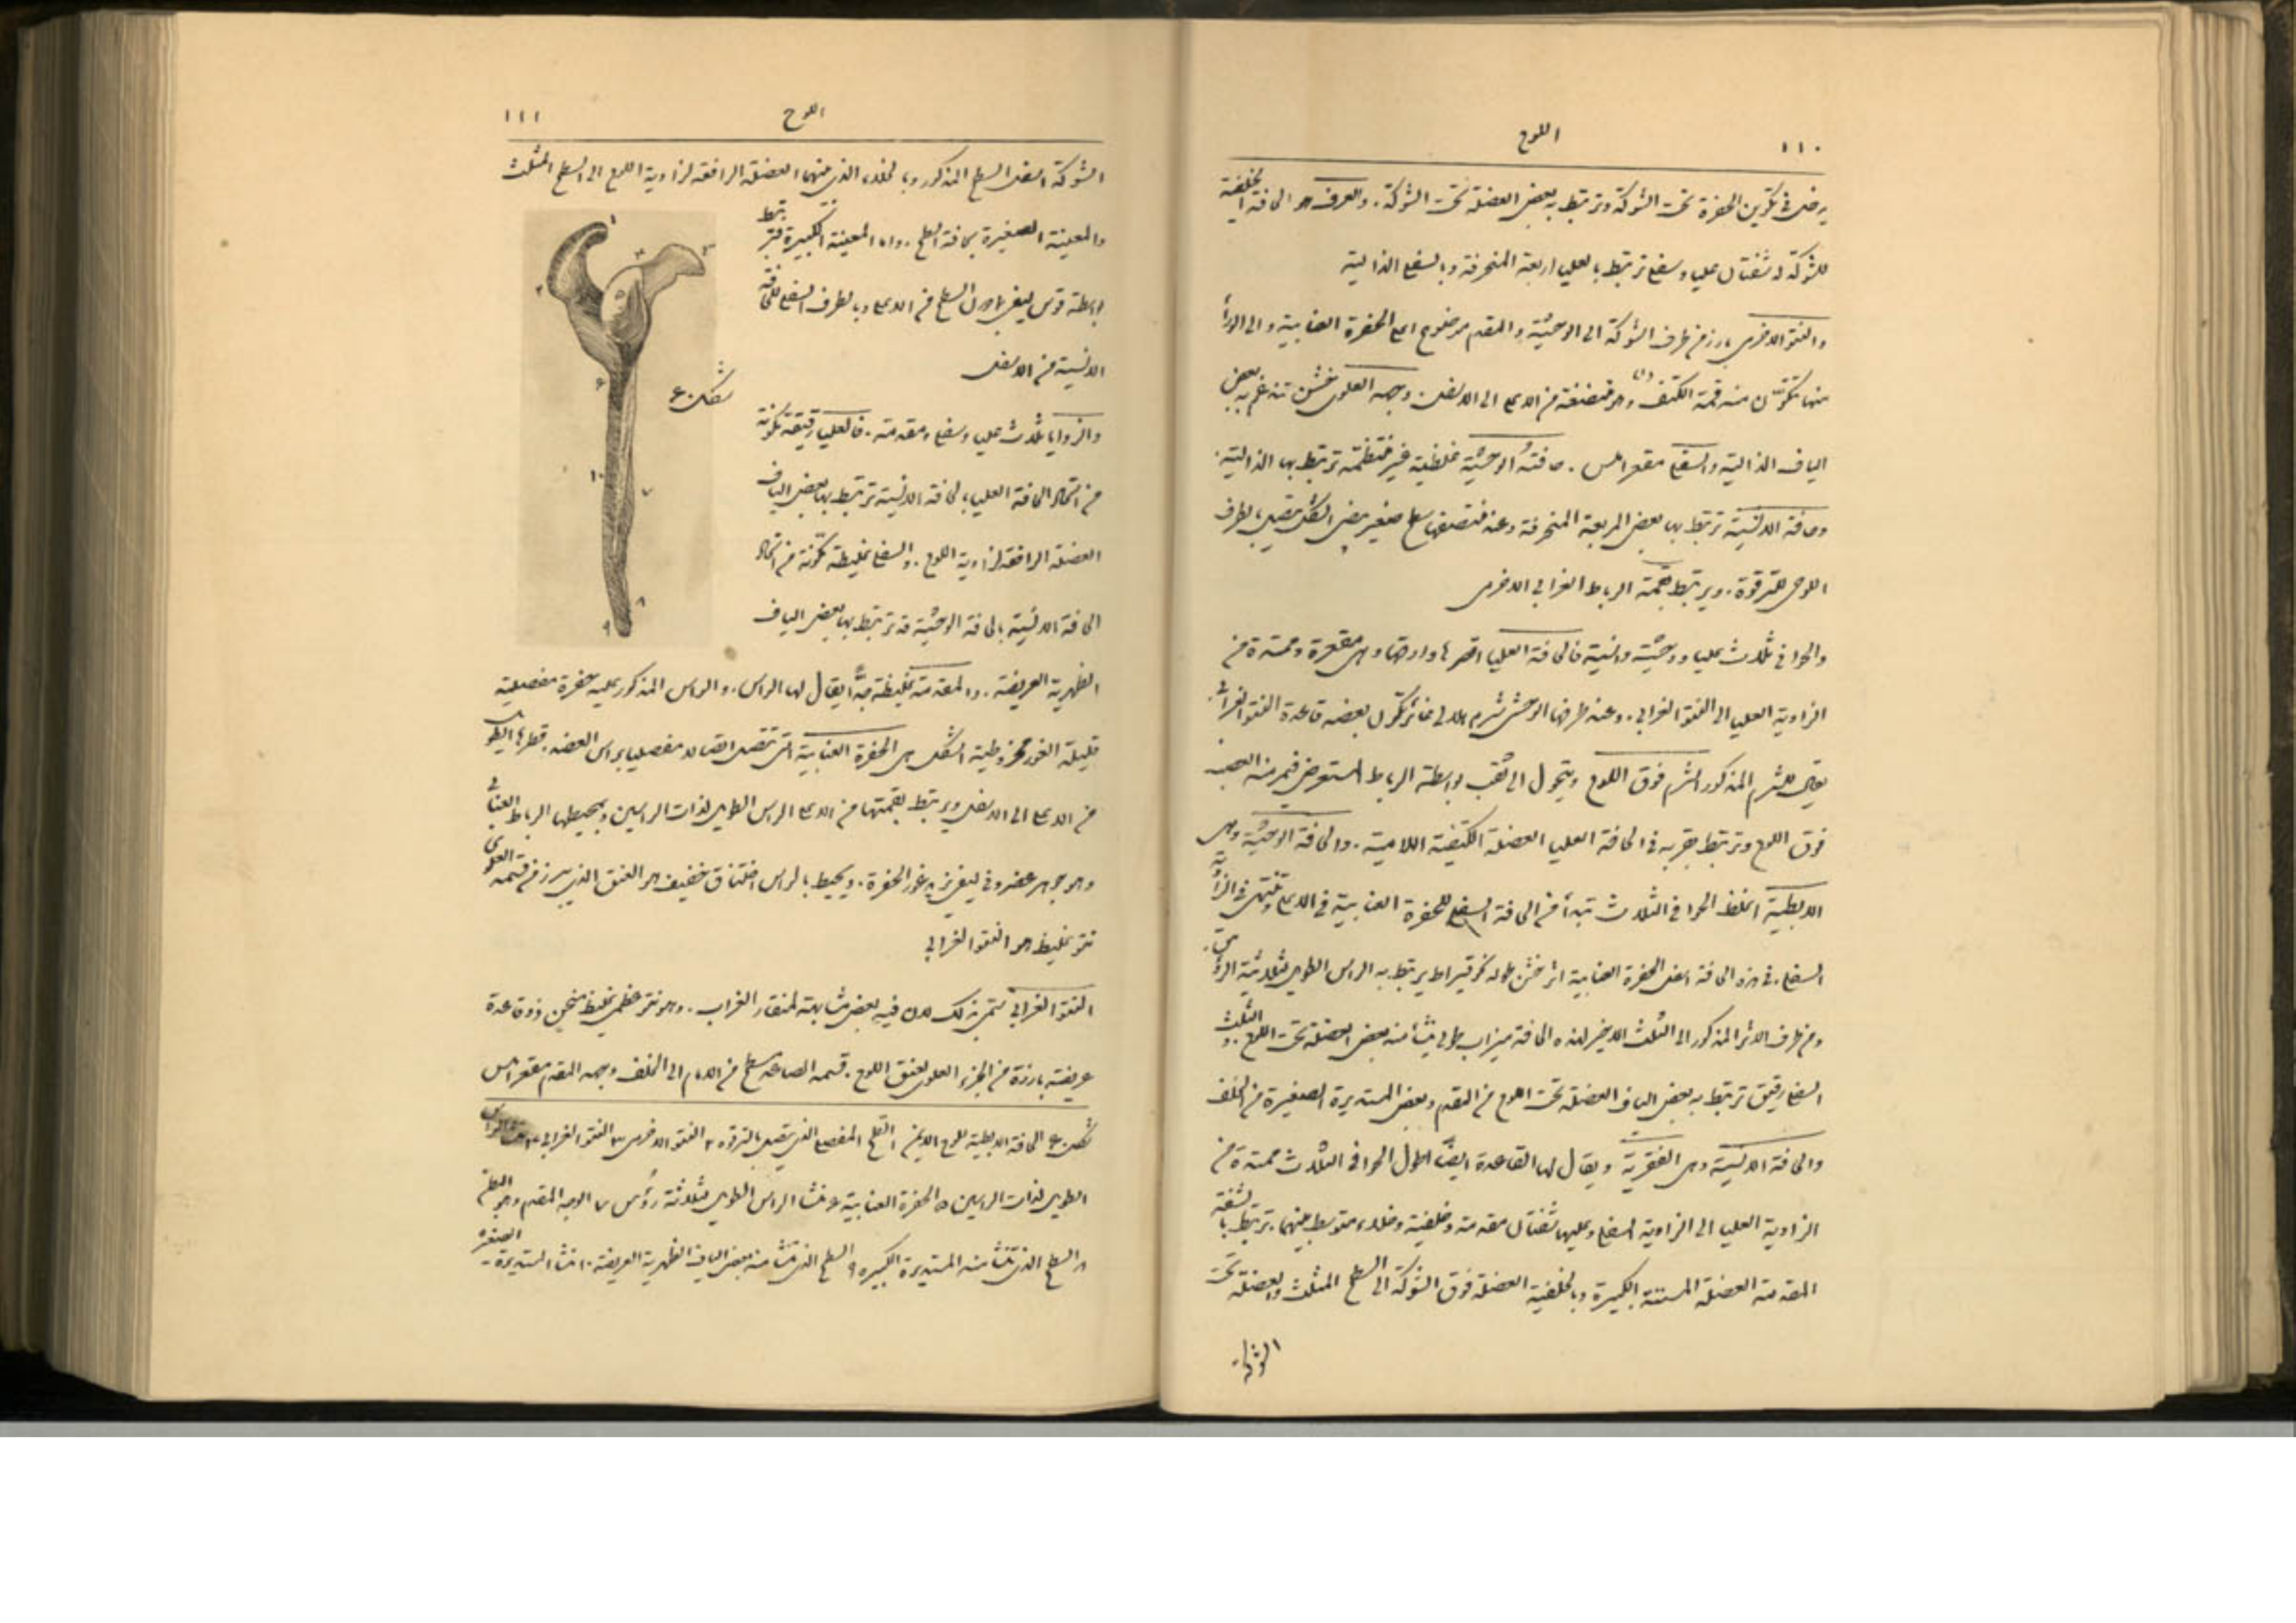 ١١٠
اللوح
يدخل في تكوين الحفرة تحت الشوكة وترتبط به بعض العضلة تحت الشوكة. والعرف هو الحافة الخلفية
للشوكة له شفتان عليا وسفلى ترتبط بالعليا المربعة المنحرفة وبالسفلى الدالية
والنتو الاخرمي بارز من طرف الشوكة الى الوحشية والمقدم موضوع اعلى الحفرة العنابية والى الوراء
منها تتكون منه قمة الكتف وهو منضغط من الاعلى الى الاسفل. وجهه العلوي خشن تندغم به بعض
الياف الدالية والسفلي مقعر املس. حافته الوحشية غليظة غير منتظمة ترتبط بها الدالية.
وحافته الانسية ترتبط بها بعض المربعة المنحرفة وعند منتصفها سطح صغير بيضي الشكل يتصل بالطرف
اللوحي للترقوة. ويرتبط بقمته الرباط الغرابي الاخرمي
والحوافي ثلاث عليا ووحشية وانسية فالحافة العليا اقصرها وارقها وهي مقعرة وممتدة من
الزاوية العليا الى النتو الغرابي. وعند طرفها الوحشي شرم هلالي غائر تكون بعضه قاعدة النتو الغرابي.
يقال للشرم المذكور الشرم فوق اللوح ويتحول الى ثقب بواسطة الرباط المستعرض فيمر منه العصب
فوق اللوح وترتبط بقربه في الحافة العليا العضلة الكتفية اللامية. والحافة الوحشية وهي
الابطية اغلظ الحوافي الثلاث تبدأ من الحافة السفلى للحفرة العنابية في الاعلى وتنتهي في الزاوية
السفلى. في هذه الحافة اسفل الحفرة العنابية اثر خشن طوله نحو قيراط يرتبط به الراس الطويل لثلاثية الرؤوس.
ومن طرف الاثر المذكور الى الثلث الاخير لهذه الحافة ميزاب طولي ينشأ منه بعض العضلة تحت اللوح. والثلث
السفلي رقيق ترتبط به بعض الياف العضلة تحت اللوح من المقدم وبعض المستديرة الصغيرة من الخلف
والحافة الانسية وهي الفقرية ويقال لها القاعدة ايضاً اطول الحوافي الثلاث ممتدة من
الزاوية العليا الى الزاوية السفلى وعليها شفتان مقدمة وخلفية وخلاء متوسط بينهما. ترتبط بالشفة
المقدمة العضلة المسننة الكبيرة وبالخلفية العضلة فوق الشوكة الى السطح المثلث والعضلة تحت
الشوكة
١١١
اللوح
الشوكة اسفل السطح المذكور وبالخلاء الذي بينهما العضلة الرافعة لزاوية اللوح الى السطح المثلث
والمعينة الصغيرة بحافة السطح. واما المعينة الكبيرة فترتبط
بواسطة قوس ليفي باول السطح في الاعلى وبالطرف السفلي للحافة
الانسية من الاسفل
والزوايا ثلاث عليا وسفلى ومقدمة. فالعليا رقيقة تكونة
من اتحاد الحافة العليا بالحافة الانسية ترتبط بها بعض الياف
العضلة الرافعة لزاوية اللوح. والسفلى غليظة تكونة من اتحاد
الحافة الانسية بالحافة الوحشية قد ترتبط بها بعض الياف
الظهرية العريضة. والمقدمة غليظة جداً يقال لها الراس. والراس المذكور عليه حفرة مفصلية
قليلة الغور مخروطية الشكل هي الحفرة العنابية التي تتصل اتصالا مفصليا براس العضد. قطرها الطولي
من الاعلى الى الاسفل ويرتبط بقمتها من الاعلى الراس الطويل لذات الراسين ويحيطها الرباط العنابي
وهو جوهر غضروفي ليفي يزيد غور الحفرة. ويحيط بالراس اختناق خفيف هو العنق الذي يبرز من قسمه العلوي
نتو غليظ هو النتو الغرابي
النتو الغرابي سمي بذلك لان فيه بعض مشابهة لمنقار الغراب. وهو نتو عظمي غليظ منحنٍ ذو قاعدة
عريضة بارزة من الجزء العلوي لعنق اللوح. قسمه الصاعد مسطح من الامام الى الخلف وجهه المقدم مقعر املس
١
٢
٣
٤
٥
٦
٧
٨
٩
١٠
شكل ٤٠
شكل ٤٠ الحافة الابطية للوح الايمن ١ السطح المفصلي الذي يتصل بالترقوة ٢ النتو الاخرمي ٣ النتو الغرابي ٤ منشا الراس
الطويل لذات الراسين ٥ الحفرة العنابية ٦ منشا الراس الطويل لثلاثة رؤس ٧ الوجه المقدم وهو البطني
٨ السطح الذي تنشا منه المستديرة الكبيرة ٩ السطح الذي تنشا منه بعض الياف الظهرية العريضة ١٠ منشا المستديرة الصغيرة